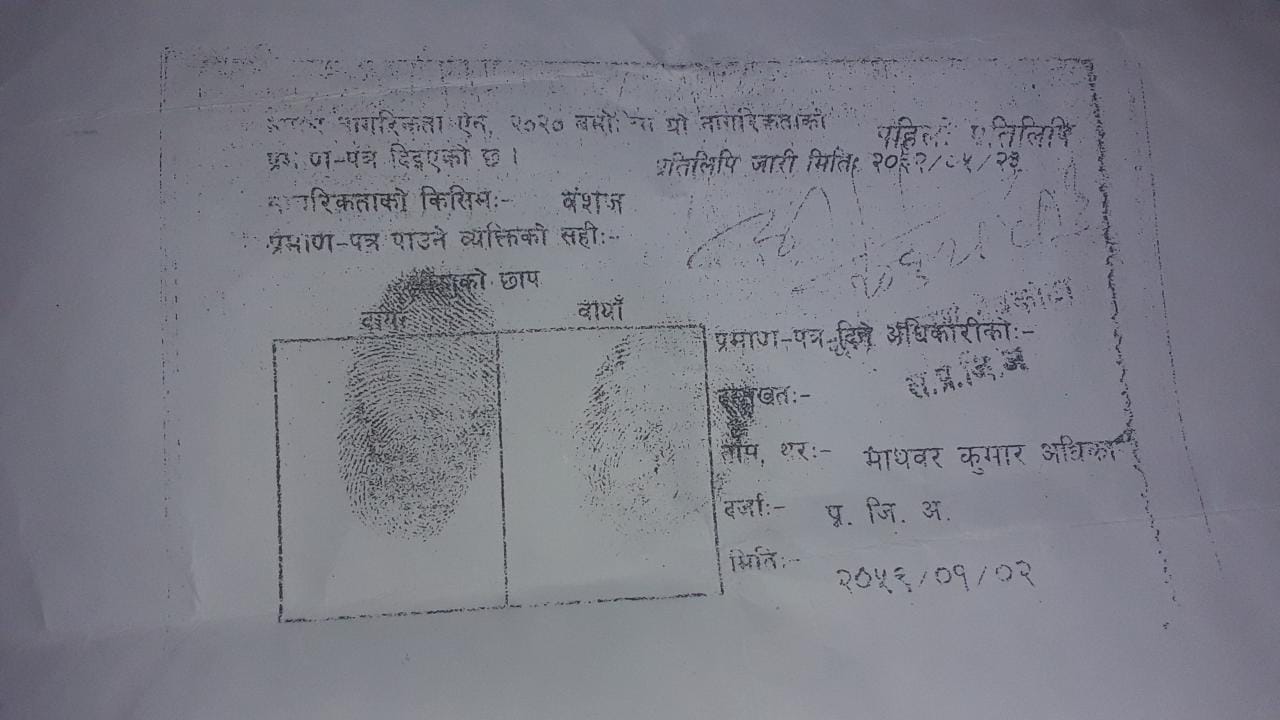 नागरिकता ऐन, २०२० बमो. यो नागरिकताको
प्रमाण-पत्र दिइएको छ ।
पहिलो प्रतिलिपि
प्रतिलिपि जारी मितिः
नागरिकताको किसिमः- वंशज
प्रमाण-पत्र पाउने व्यक्तिको सहीः-
छाप
दायाँ बायाँ
प्रमाण-पत्र दिने अधिकारीकोः-
दस्तखतः-
नाम, थरः- माधवर कुमार अधिका
दर्जाः- प्र. जि. अ.
मितिः- २०५६/०१/०२